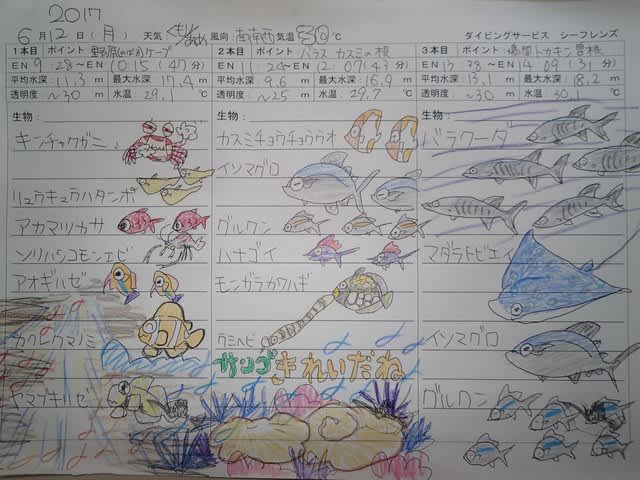 2017
6月12日(月) 天気 くもり 風向 南南西 気温 30℃ ダイビングサービス シーフレンズ
1本目 ポイント
EN 9:28〜EN 10:15(47分)
平均水深:11.3m 最大水深 17.4m
透明度 〜30m 水温:29.1℃
生物:
キンチャクガニ
リュウキュウハタンポ
アカマツカサ
ソリハシコモンエビ
アオギハゼ
カクレクマノミ
ヤマブキハゼ
2本目 ポイント パラス カスミの根
EN 11:24〜EN 12:07(43分)
平均水深:9.6m 最大水深:16.9m
透明度 〜25m 水温:29.7℃
生物:
カスミチョウチョウウオ
イソマグロ
グルクン
ハナゴイ
モンガラカワハギ
ウミヘビ
サンゴきれいだね
3本目 ポイント
EN 13:38〜EN 14:09(31分)
平均水深:13.1m 最大水深:18.2m
透明度 〜30m 水温:30.1℃
生物:
バラクーダ
マダラトビエイ
イソマグロ
グルクン